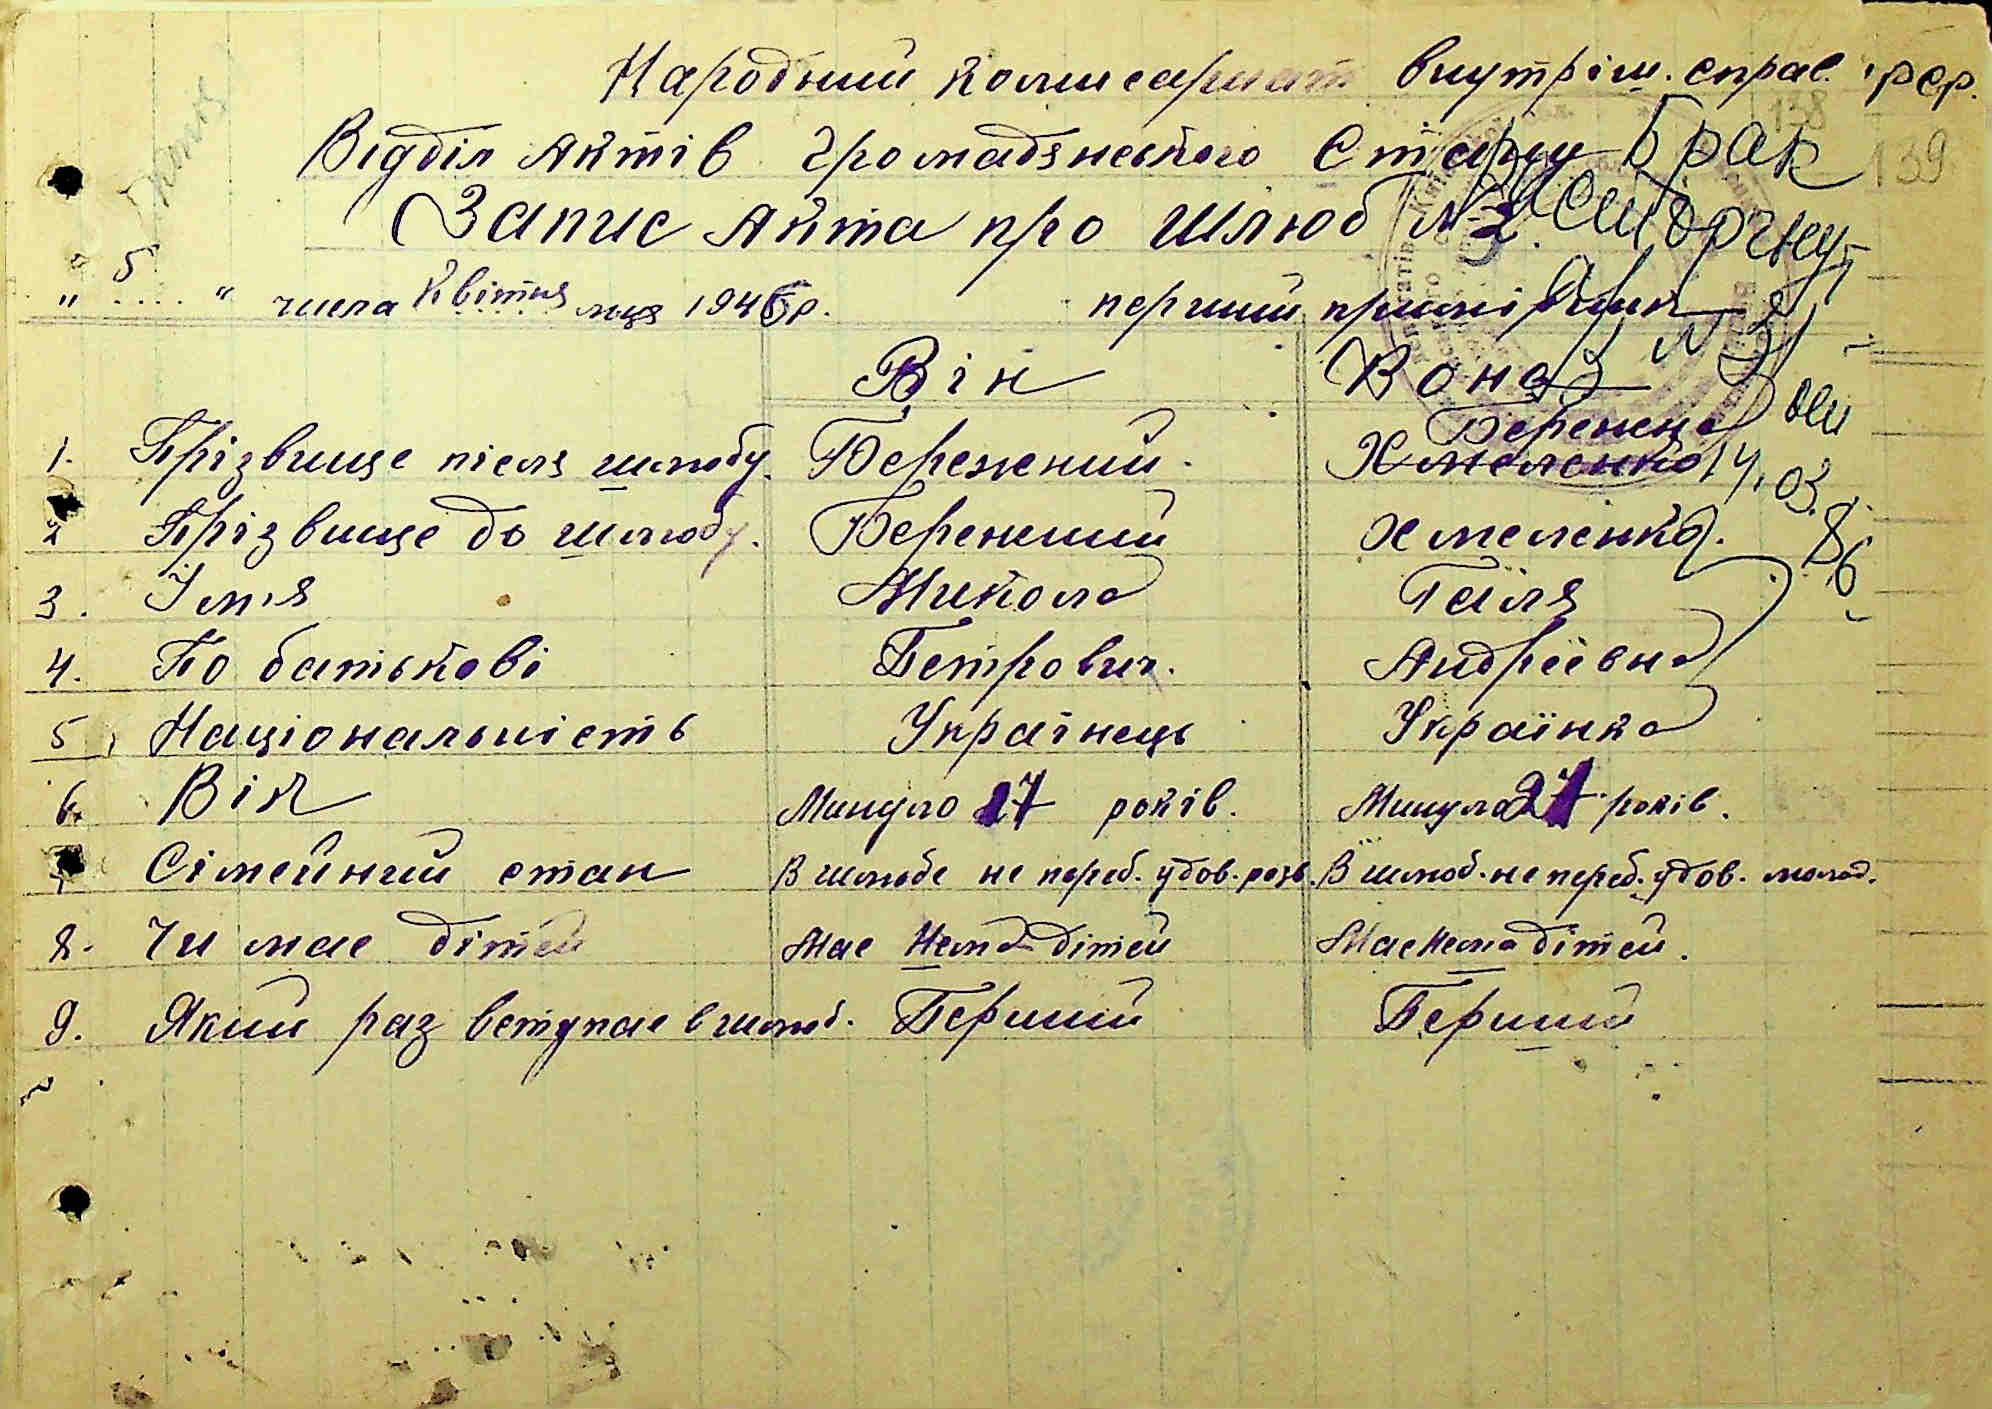 Народний комисариат внутріш. справ. рср.
138
139
Відділ Актів Громадянського Стану Брак
Запис Акта про шлюб №2. расторгнут
"5" числа Квітня м-ця 1945р. перший примірник
Він Вона
Бережна
1. Прізвище після шлюбу. Бережний. Хмеленко
14.03.86
2 Прізвище до шлюбу. Бережний Хмеленко.
3. Імя Микола Галя
4. По батькові Петрович. Андріївна
5. Національність Українець Українка
6. Вік Минуло 27 років. Минуло 27 років.
7 Сімейний стан В шлюбе не переб. удов. розв. В шлюб. не переб. удов. молод.
8. Чи має дітей Має Нема дітей Має Нема дітей.
9. Який раз вступає в шлюб. Перший Перший